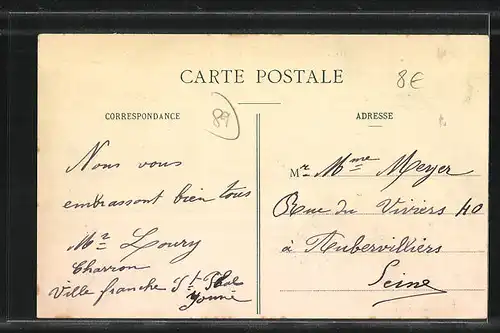 CARTE POSTALE
8€
CORRESPONDANCE
89
ADRESSE
Nous vous
embrassont bien tous
Mr Loury
Charron
Ville franche St Phal
Yonne
Mr Mme Meyer
Rue du Viviers 40
à Aubervilliers
Seine